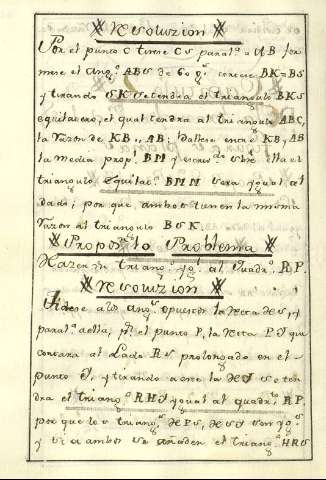 Resoluzion
Por el punto C tirese CG paral.ª a AB for
mese el ang.º ABG de 60 g.s cortese BK=BG
y tirando GK se tendra el triangulo BKG
equilatero, el qual tendra al triangulo ABC,
la razon de KB, AB; Hallese entre KB, AB
la media prop.l BM y sobre ella el
triangulo equilat.º BMN sera ygual al
dado; por que ambos tienen la misma
razon al triangulo BGK.
Proposito Problema
Hazer un triang.º yg.l al Quadr.º RP.
Resoluzion
Tirese a los ang.s opuestos la Recta HS, y
paral.ª a ella, p.r el punto P, la Recta PI que
cortara al Lado RS prolongado en el
punto I, y tirando a ora la HI se ten
dra el triang.º RHI ygual al quadr.º RP,
por que los triang.s HPS, HSI son yg.s
y si a ambos se añaden el triang.º HRS